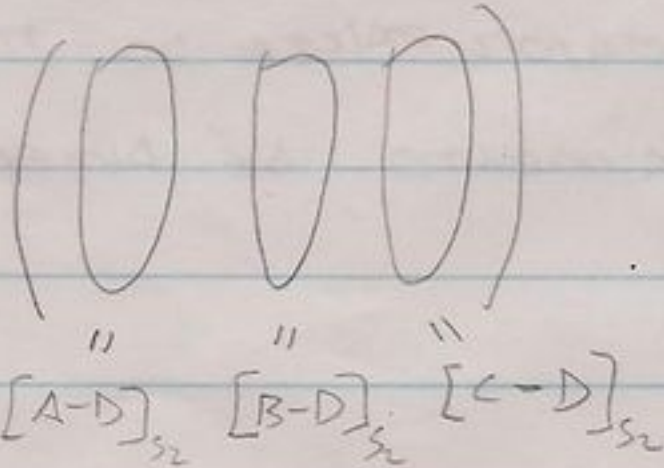 ( 0 0 0 )
" " "
[A-D]_{S_2} [B-D]_{S_2} [C-D]_{S_2}